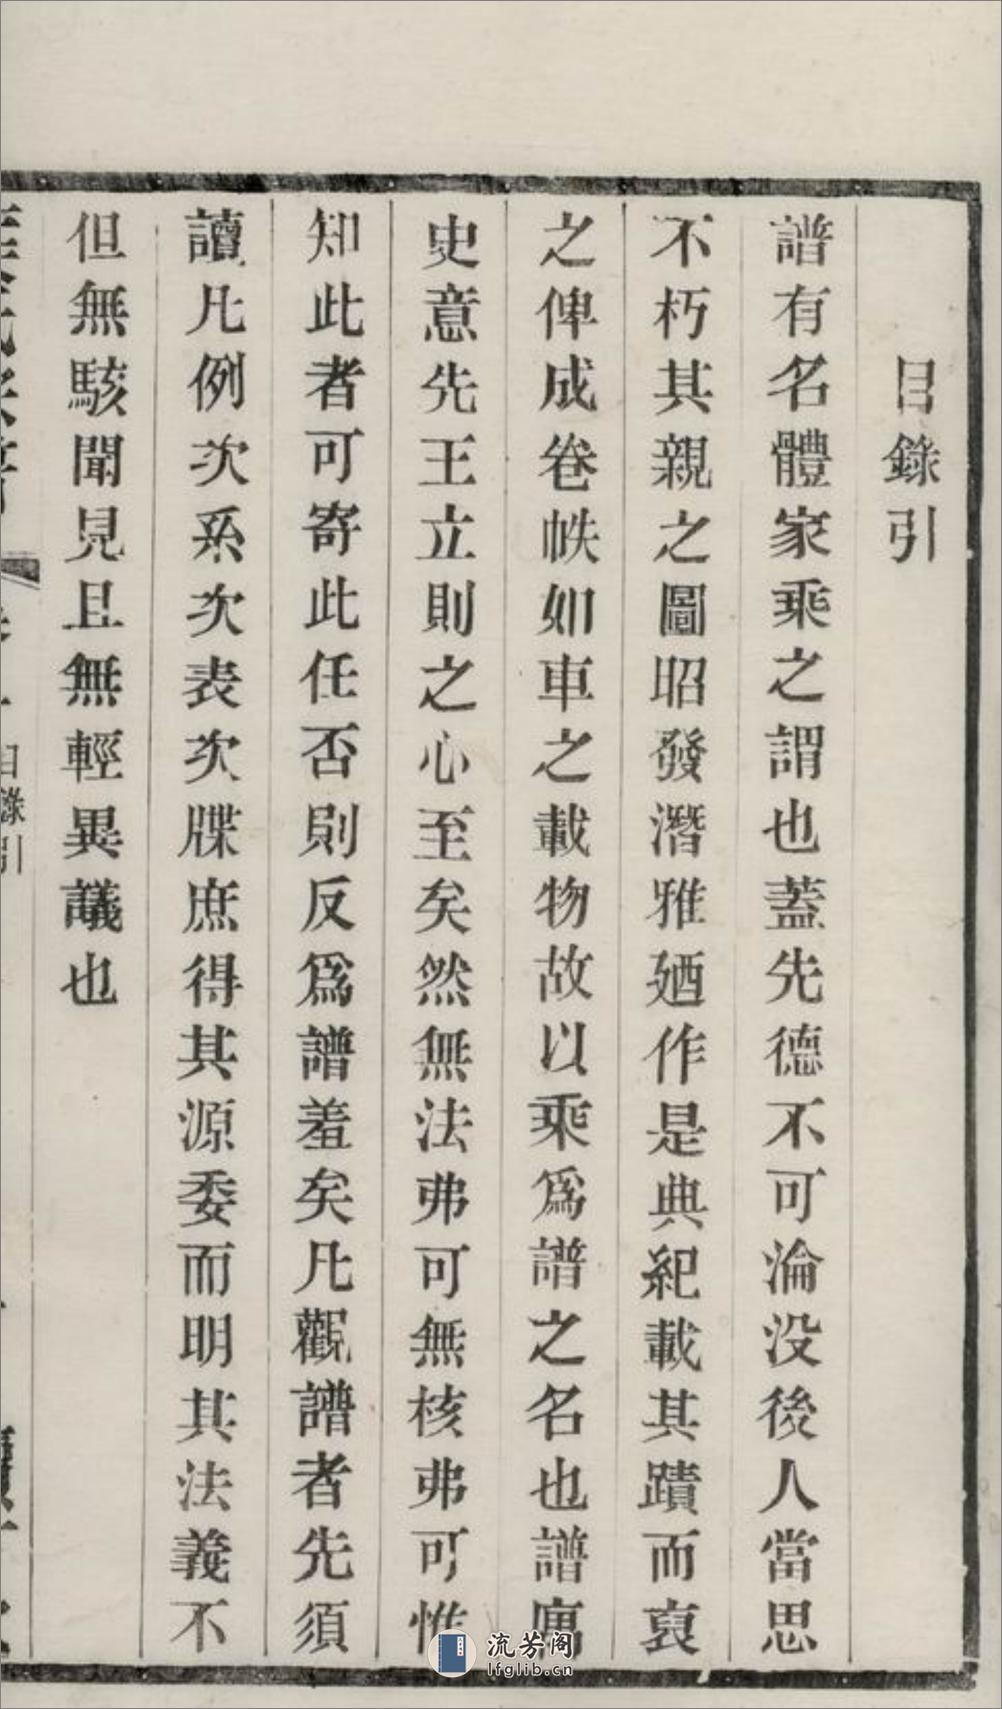 目錄引
譜有名體家乘之謂也蓋先德不可淪没後人當思
不朽其親之圖昭發潛雅廼作是典紀載其蹟而裒
之俾成卷帙如車之載物故以乘爲譜之名也譜寓
史意先王立則之心至矣然無法弗可無核弗可惟
知此者可寄此任否則反爲譜羞矣凡觀譜者先須
讀凡例次系次表次牒庶得其源委而明其法義不
但無駭聞見且無輕異議也
目錄引
流芳阁
lfglib.cn